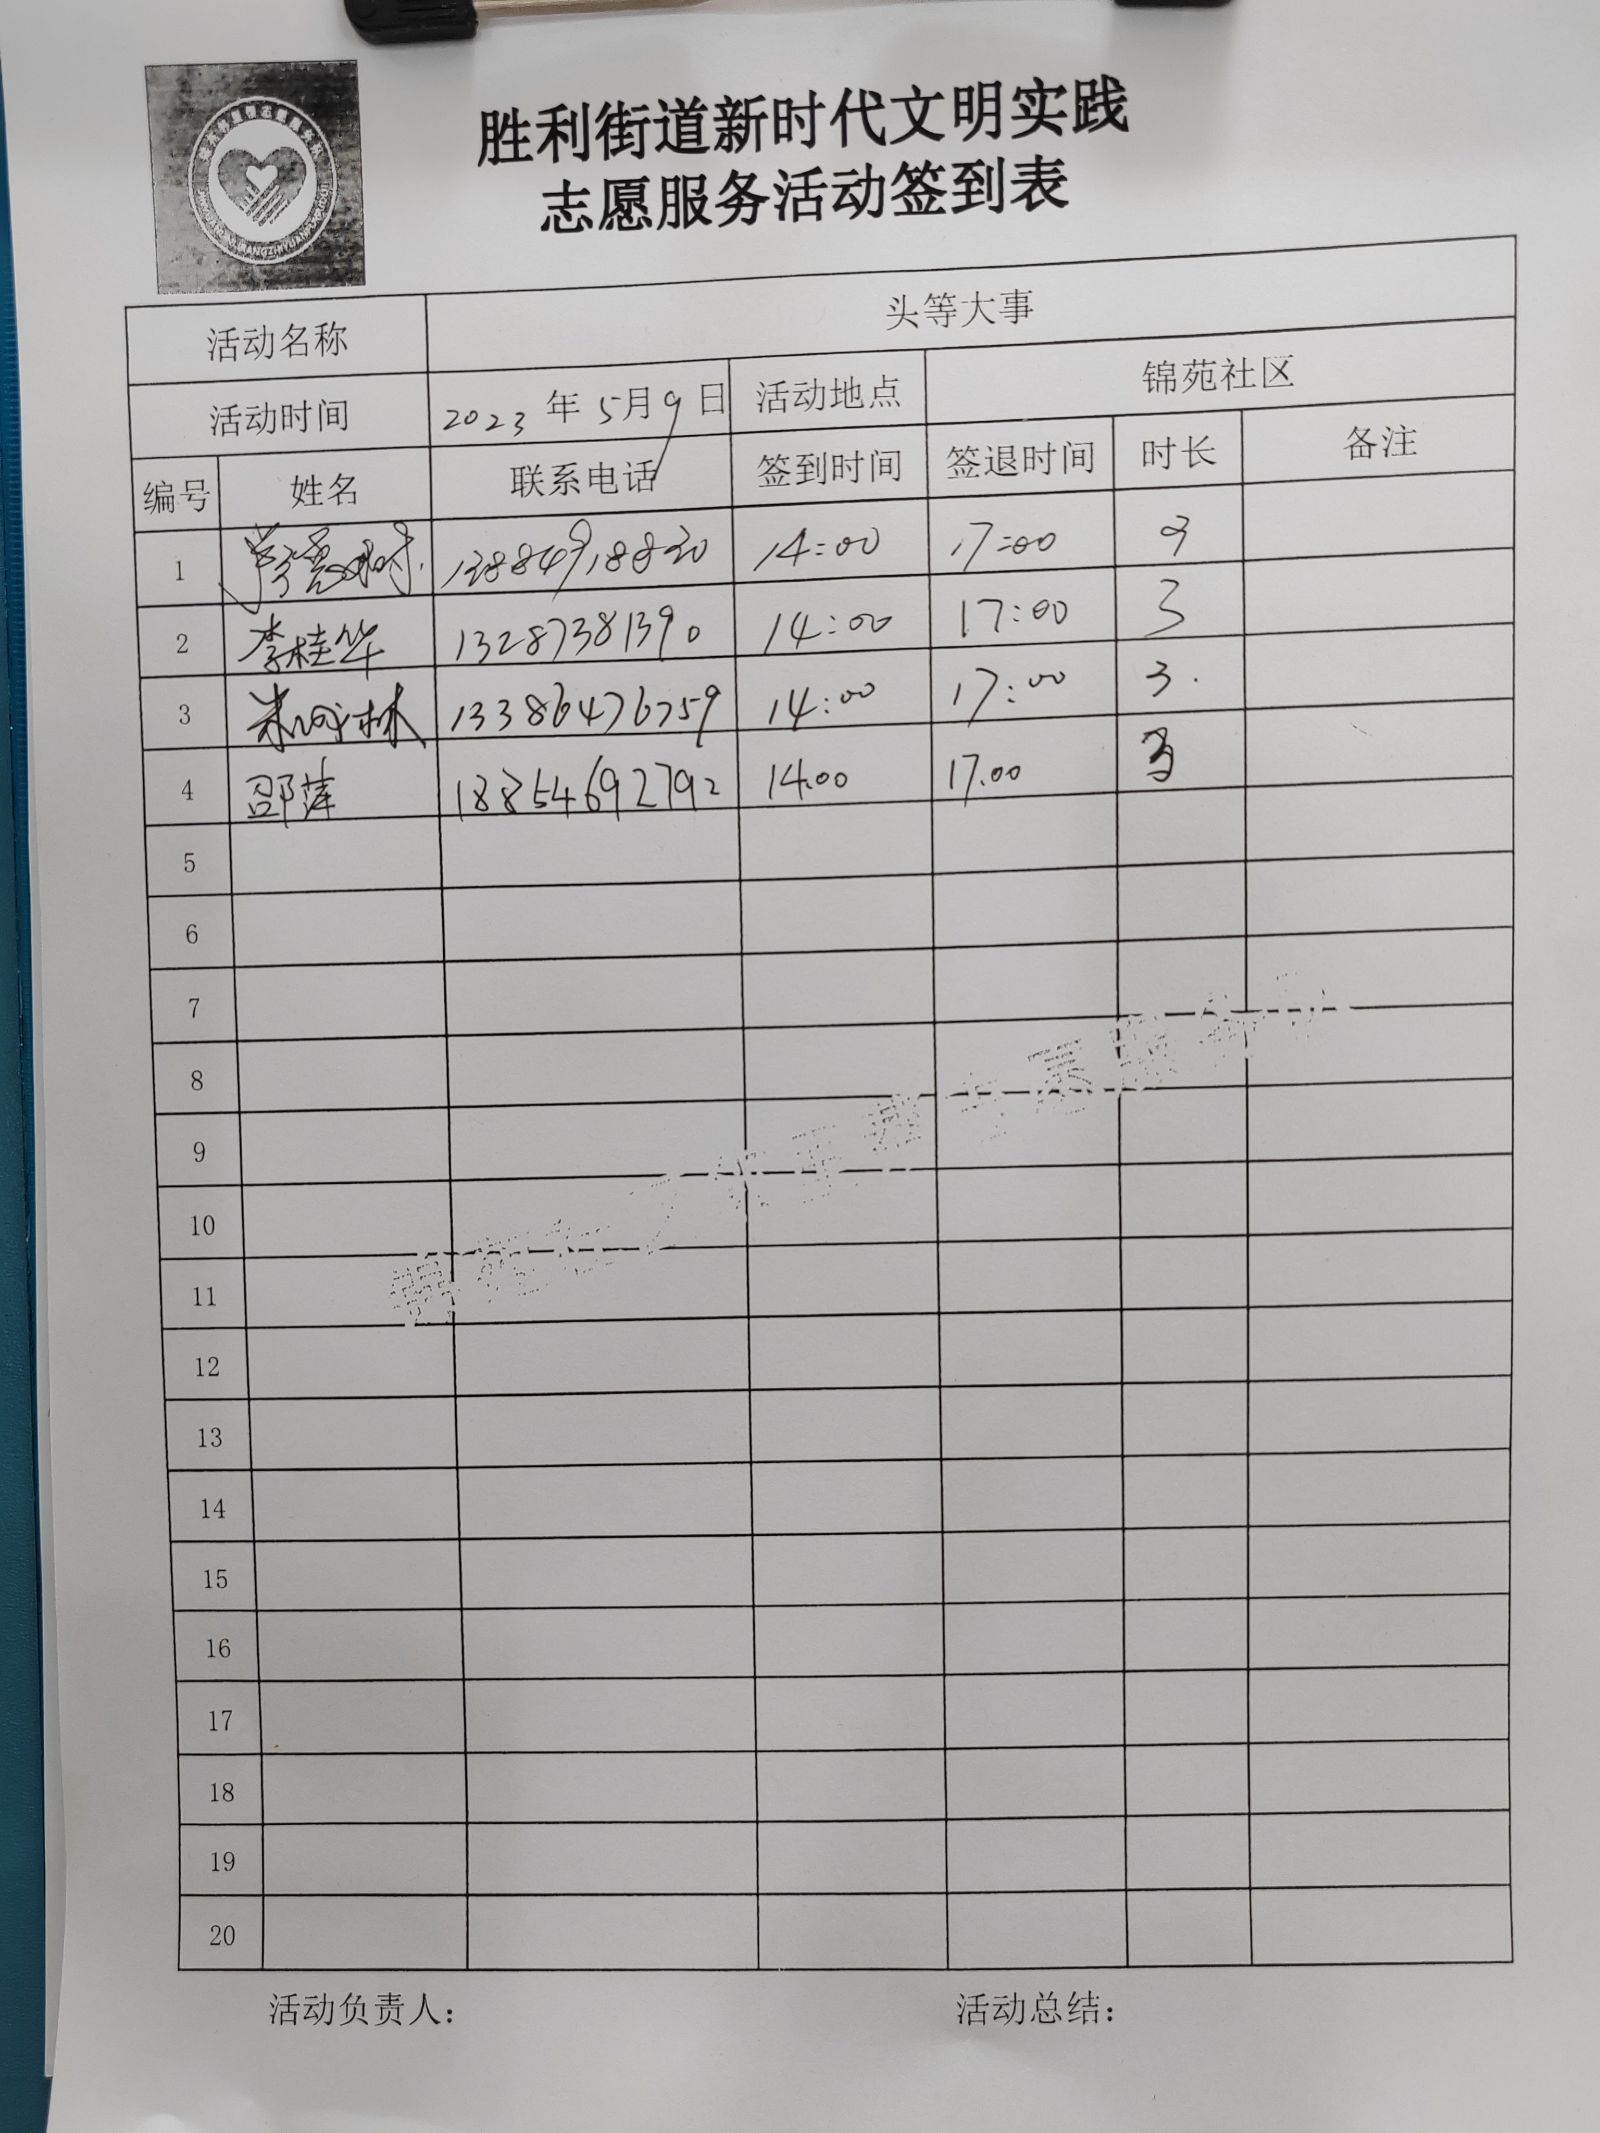 胜利街道新时代文明实践
志愿服务活动签到表
活动名称 头等大事
活动时间 2023年5月9日 活动地点 锦苑社区
编号 姓名 联系电话 签到时间 签退时间 时长 备注
1 13884918820 14:00 17:00 3
2 李桂华 13287381390 14:00 17:00 3
3 13386476759 14:00 17:00 3.
4 邵萍 18854692792 14.00 17.00 3
5
6
7
8
9
10
11
12
13
14
15
16
17
18
19
20
活动负责人： 活动总结：